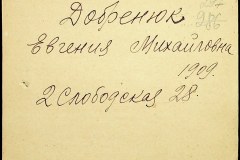 Добренюк
Евгения Михайловна
1909.
2 Слободская 28.